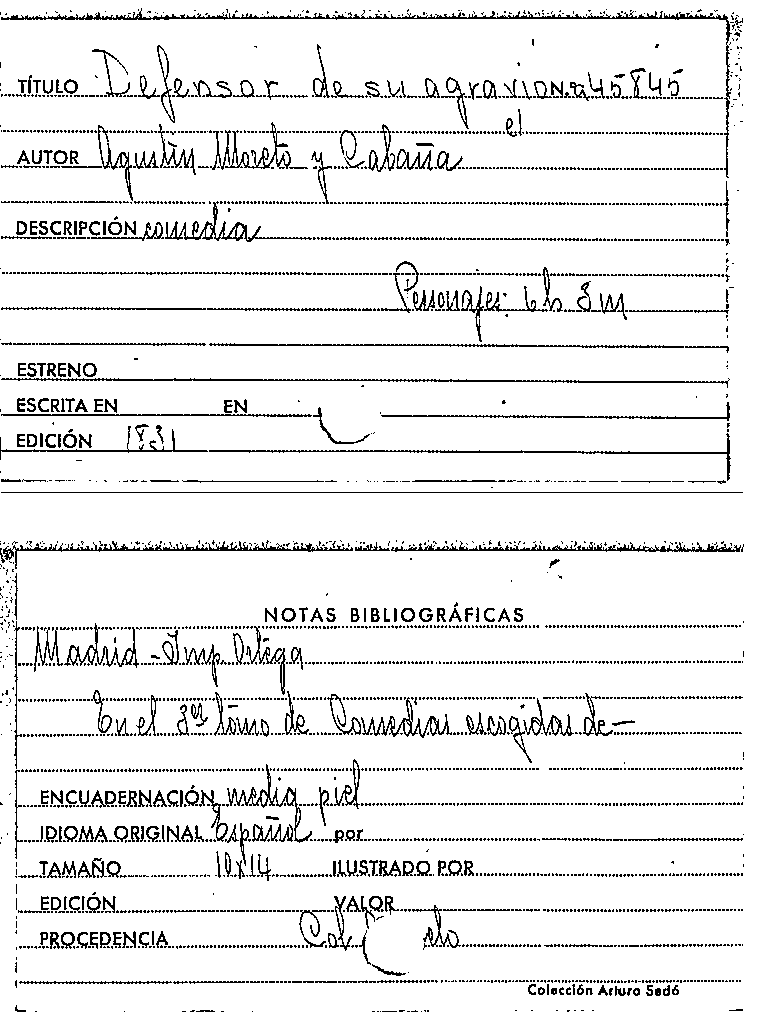 TÍTULO Defensor de su agravio N.º 45845
el
AUTOR Agustín Moreto y Cabaña
DESCRIPCIÓN comedia
Personajes: 6 h 3 m
ESTRENO
ESCRITA EN EN
EDICIÓN 1831
NOTAS BIBLIOGRÁFICAS
Madrid - Imp Ortega
En el 3er tomo de Comedias escogidas de—
ENCUADERNACIÓN media piel
IDIOMA ORIGINAL Español por
TAMAÑO 10x14 ILUSTRADO POR
EDICIÓN VALOR
PROCEDENCIA Col
Colección Arturo Sedó